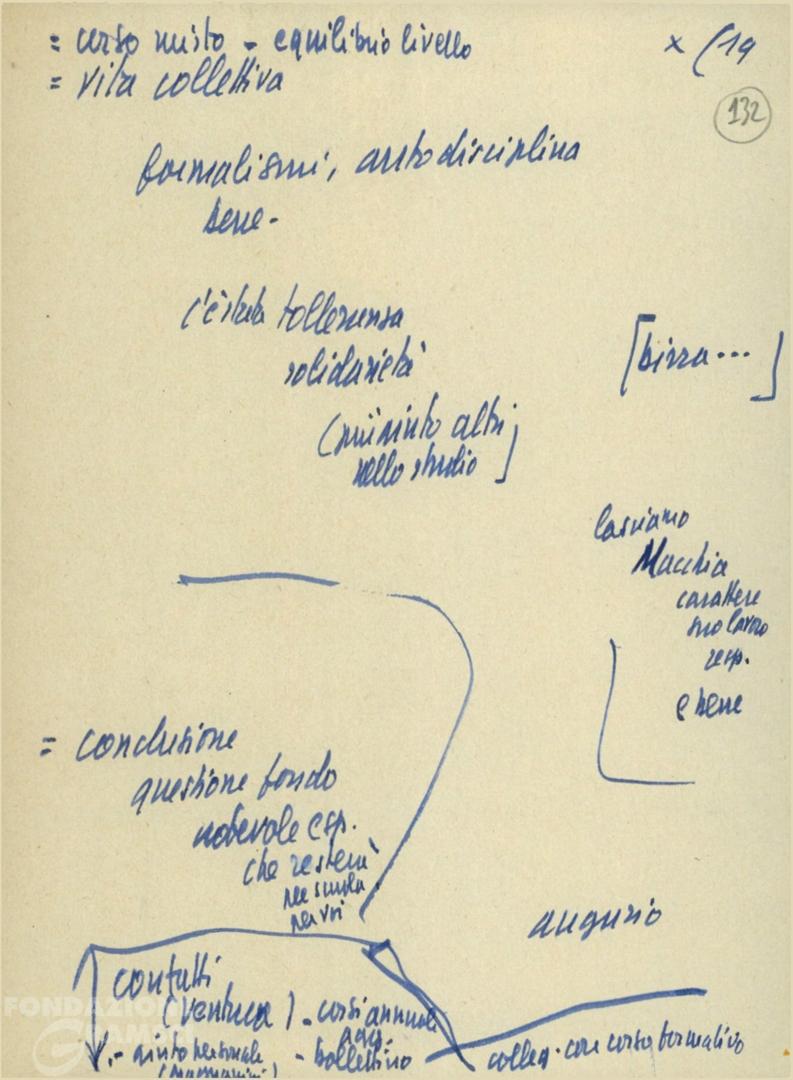 = corso misto - equilibrio livello
x (19
132
= vita collettiva
formalismi, autodisciplina
bene -
c'è stata tolleranza
solidarietà
[birra...]
(più aiuto altri
nello studio]
lasciamo
Macchia
carattere
suo lavoro
resp.
e bene
= conclusione
questione fondo
notevole esp.
che resterà
per scuola
per voi
augurio
contatti
(ventura) - corsi annuali
agg.
- aiuto personale - bollettino
colleg. con corso formativo
FONDAZIONE
GRAMSCI